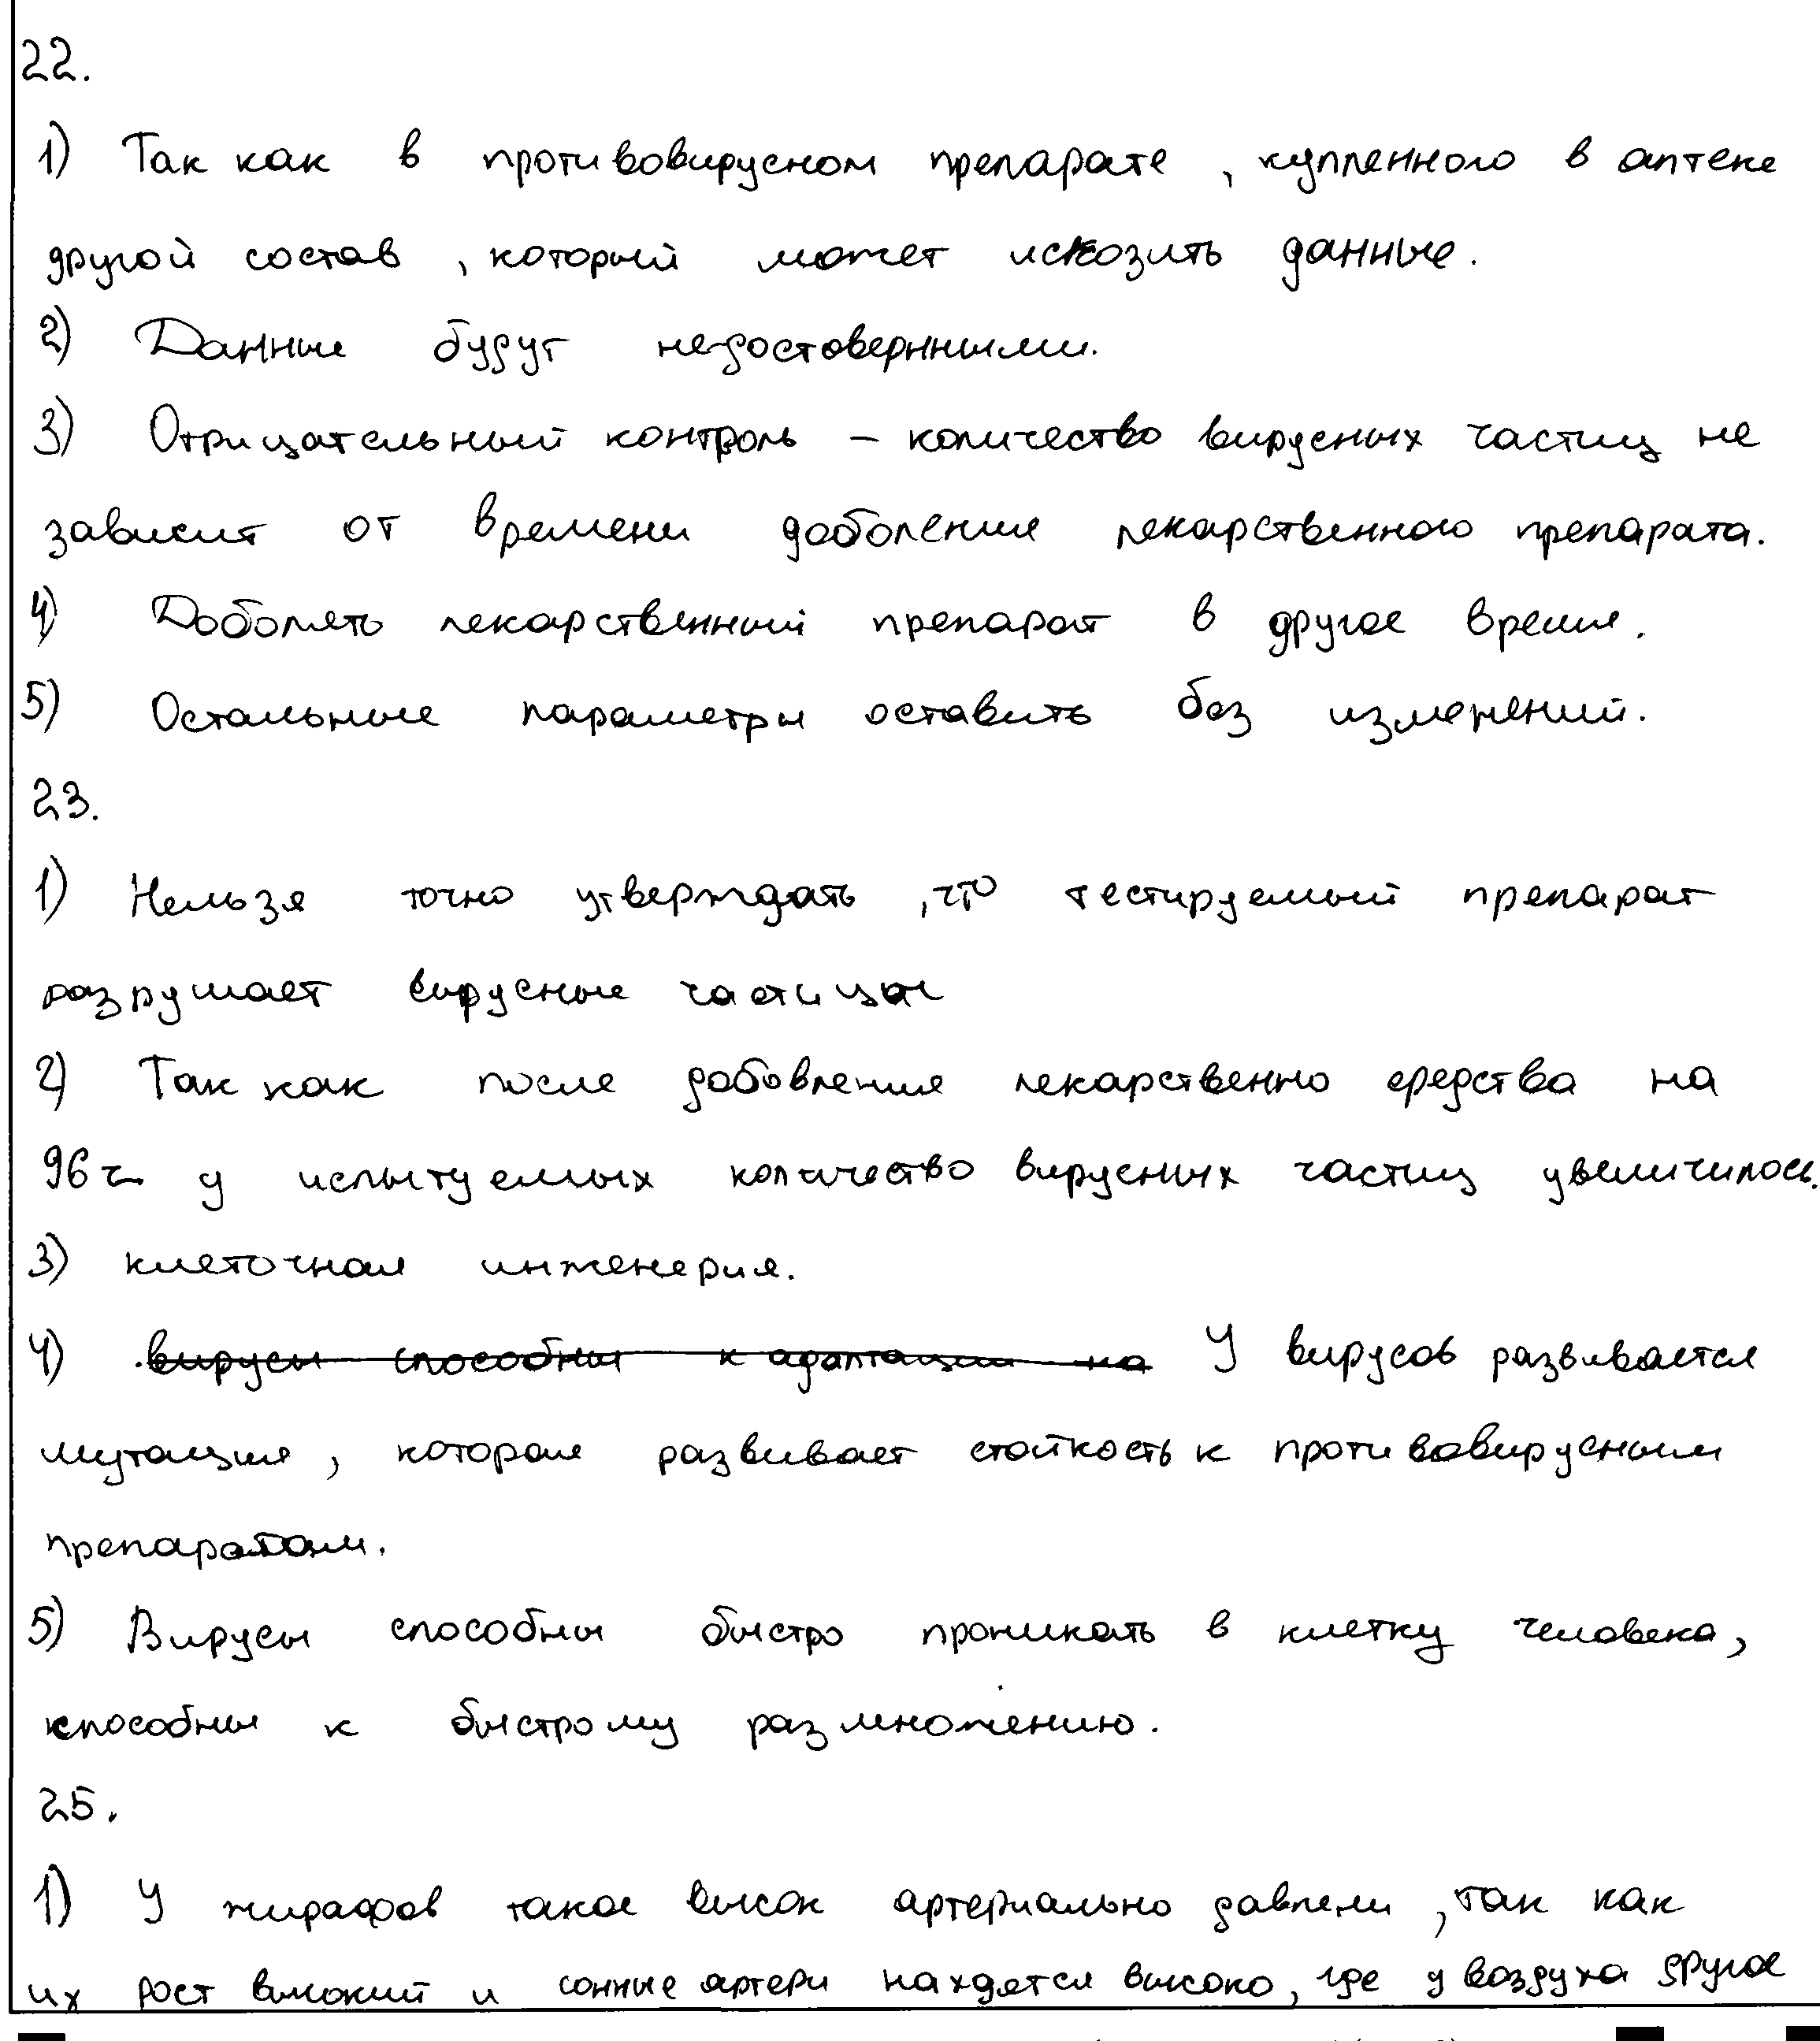 22.
1) Так как в противовирусном препарате, купленного в аптеке
другой состав, который может исказить данные.
2) Данные будут недостоверными.
3) Отрицательный контроль – количество вирусных частиц не
зависит от времени добовления лекарственного препарата.
4) Добовлять лекарственный препарат в другое время.
5) Остальные параметры оставить без изменений.
23.
1) Нельзя точно утверждать, что тестируемый препарат
разрушает вирусные частицы
2) Так как после добовления лекарственно средства на
96 ч у испытуемых количество вирусных частиц увеличилось.
3) клеточная инженерия.
4) вирусы способны к адаптации на У вирусов развивается
мутация, которая развивает стойкость к противовирусным
препаратам.
5) Вирусы способны быстро проникать в клетку человека,
способны к быстрому размножению.
25.
1) У жирафов такое высок артериально давлени, так как
их рост высокий и сонные артери находятся высоко, где у воздуха другое